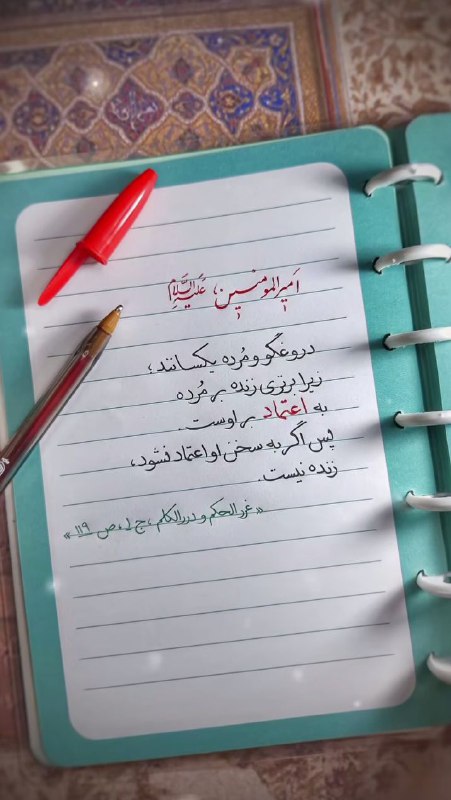 اَمیرالمومنین، عَلَیهِ‌السَّلام
دروغگو و مُرده یکسانند؛
زیرا برتری زنده بر مُرده
به اعتماد بر اوست.
پس اگر به سخن او اعتماد نشود،
زنده نیست.
«غررالحکم و دررالکلم، ج ۱، ص ۱۱۹»